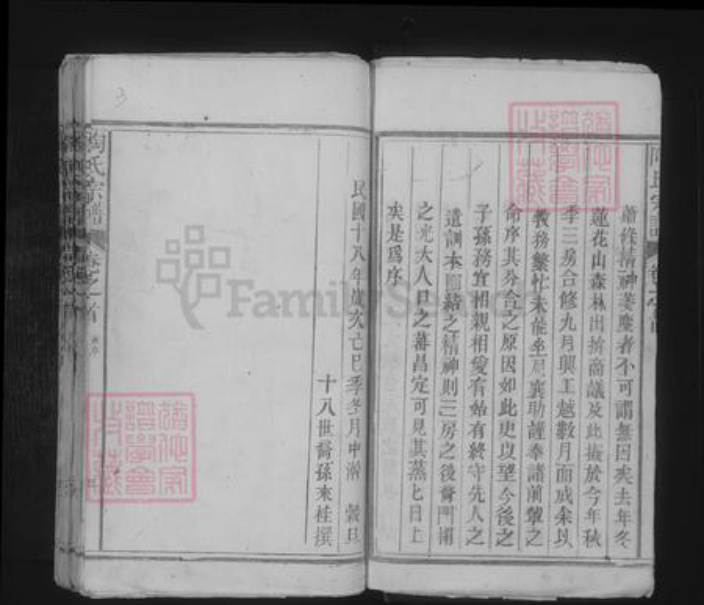 蕭條精神萎靡者不可謂無因矣去年冬
蓮花山森林出拚商議及此擬於今年秋
季三房合修九月興工越數月而成余以
教務繁忙未能坐局襄助謹奉諸前輩之
命序其分合之原因如此更以望今後之
子孫務宜相親相愛有始有終守先人之
遺訓本團結之精神則三房之後脅門閭
之光大人口之蕃昌定可見其蒸七日上
矣是爲序
民國十八年歲次亡巳季冬月中澣 穀旦
十八世裔孫來桂撰
陶氏宗譜
卷之首
陶氏宗譜 卷之首
3
FamilySearch